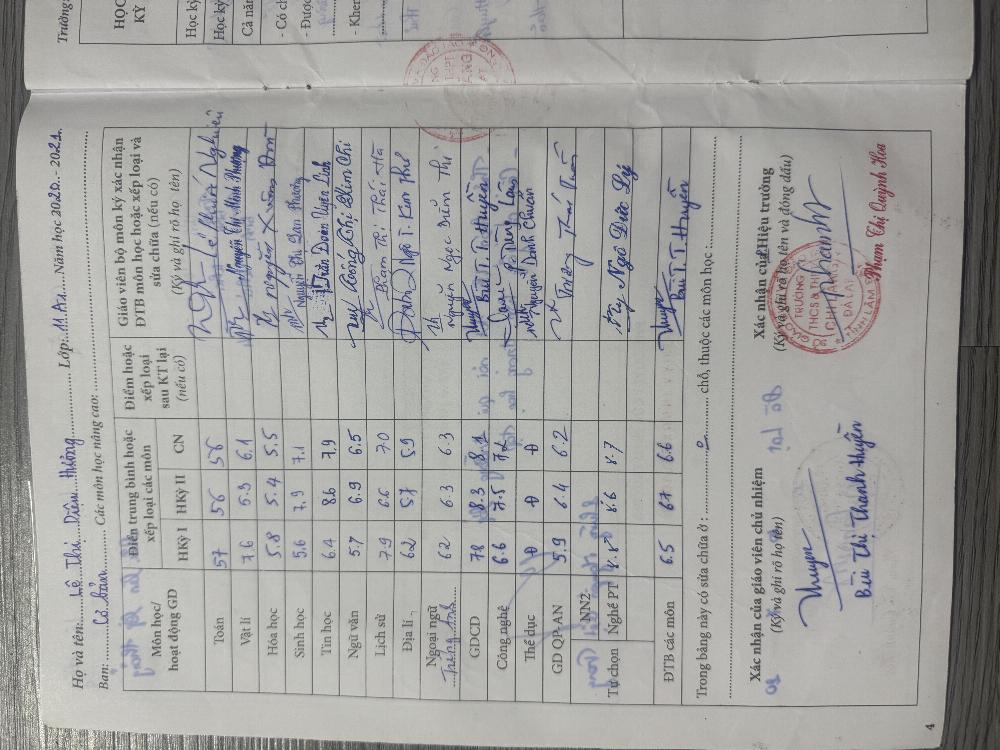 Trường:
HỌC KỲ
Học kỳ
Học kỳ
Cả năm
- Có ch
- Được
- Khen
Họ và tên: Lê Thị Diễm Hương Lớp: 11 A Năm học 2020 - 2021
Ban: Cơ bản Các môn học nâng cao:
Môn học/ hoạt động GD
Điểm trung bình hoặc xếp loại các môn
HKỳ I HKỳ II CN
Điểm hoặc xếp loại sau KT lại (nếu có)
Giáo viên bộ môn ký xác nhận ĐTB môn học hoặc xếp loại và sửa chữa (nếu có)
(Ký và ghi rõ họ tên)
Toán 57 56 56
Vật lí 7.6 5.3 6.1 Nguyễn Thị Minh Phương
Hóa học 5.8 5.4 5.5 Nguyễn Xuân
Sinh học 5.6 7.9 7.1 Nguyễn Thị Lan Phương
Tin học 6.4 8.6 7.9 Trần Đoàn Uyên Linh
Ngữ văn 5.7 6.9 6.5 Kim Chi
Lịch sử 7.9 6.6 7.0 Phạm Thị Thái Hà
Địa lí 62 57 5.9 Ngô T. Kim Thư
Ngoại ngữ Tiếng Anh 62 6.3 6.3 Nguyễn Ngọc Diễm Thi
GDCD 78 8.3 8.1 Bùi T.T. Huyền
Công nghệ 6.6 7.5 7.2
Thể dục Đ Đ Đ Nguyễn Danh Chuẩn
GD QP-AN 5.9 6.4 6.2
Tự chọn
NN2
Nghề PT 8.8 8.6 8.7 Ngô Đức Lý
ĐTB các môn 6.5 67 6.6 Bùi T.T. Huyền
Trong bảng này có sửa chữa ở : 0 chỗ, thuộc các môn học :
Xác nhận của giáo viên chủ nhiệm
(Ký và ghi rõ họ tên)
Bùi Thị Thanh Huyền
Xác nhận của Hiệu trưởng
(Ký và ghi rõ họ tên và đóng dấu)
TRƯỜNG
THCS & THPT
ĐẠ
Phạm Thị Quỳnh Hoa
4